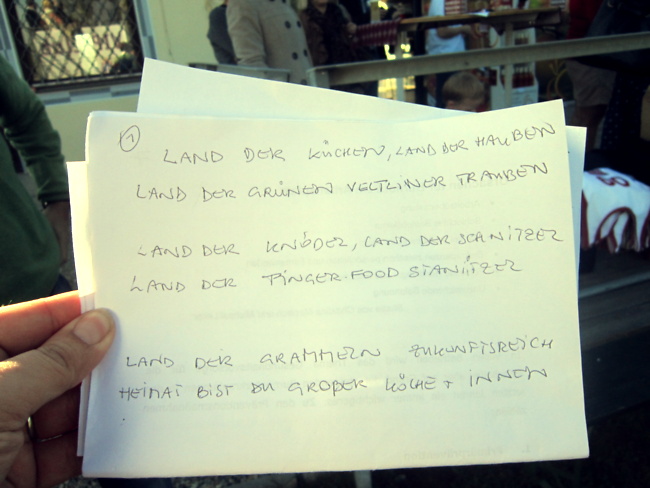 ①
LAND DER KÜCHEN, LAND DER HAUBEN
LAND DER GRÜNEN VELTLINER TRAUBEN
LAND DER KNÖDEL, LAND DER SCHNITZEL
LAND DER FINGER-FOOD STANITZEL
LAND DER GRAMMELN ZUKUNFTSREICH
HEIMAT BIST DU GROßER KÖCHE + INNEN